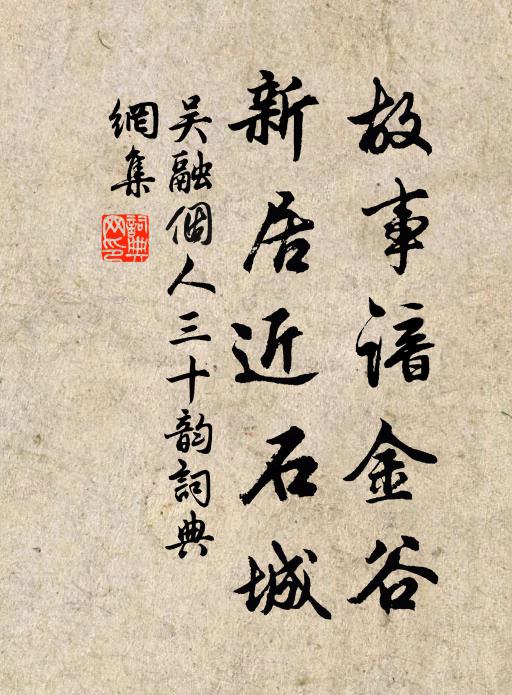 故事諳金谷
新居近石城
吴融個人三十韵詞典
網集
詞典
网印